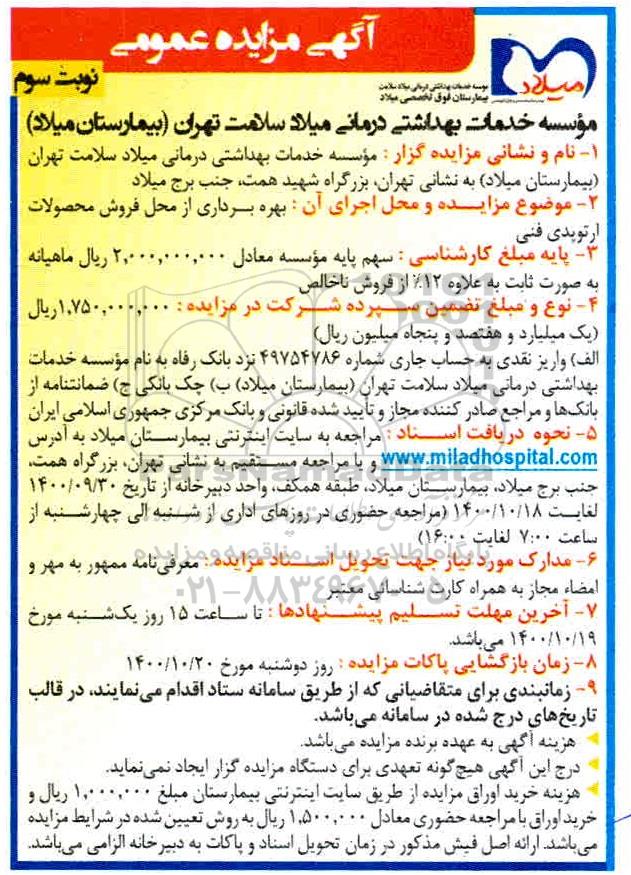 آگهی مزایده عمومی
نوبت سوم
میلاد
موسسه خدمات بهداشتی درمانی میلاد سلامت
بیمارستان فوق تخصصی میلاد
مؤسسه خدمات بهداشتی درمانی میلاد سلامت تهران (بیمارستان میلاد)
۱- نام و نشانی مزایده گزار : مؤسسه خدمات بهداشتی درمانی میلاد سلامت تهران
(بیمارستان میلاد) به نشانی تهران، بزرگراه شهید همت، جنب برج میلاد
۲- موضوع مزایده و محل اجرای آن : بهره برداری از محل فروش محصولات
ارتوپدی فنی
۳- پایه مبلغ کارشناسی : سهم پایه مؤسسه معادل ۲,۰۰۰,۰۰۰,۰۰۰ ریال ماهیانه
به صورت ثابت به علاوه ۱۲٪ از فروش ناخالص
۴- نوع و مبلغ تضمین سپرده شرکت در مزایده : ۱,۷۵۰,۰۰۰,۰۰۰ ریال
(یک میلیارد و هفتصد و پنجاه میلیون ریال)
الف) واریز نقدی به حساب جاری شماره ۴۹۷۵۴۷۸۶ نزد بانک رفاه به نام مؤسسه خدمات
بهداشتی درمانی میلاد سلامت تهران (بیمارستان میلاد) ب) چک بانکی ج) ضمانتنامه از
بانک‌ها و مراجع صادر کننده مجاز و تأیید شده قانونی و بانک مرکزی جمهوری اسلامی ایران
۵- نحوه دریافت اسناد : مراجعه به سایت اینترنتی بیمارستان میلاد به آدرس
www.miladhospital.com و یا مراجعه مستقیم به نشانی تهران، بزرگراه همت،
جنب برج میلاد، بیمارستان میلاد، طبقه همکف، واحد دبیرخانه از تاریخ ۱۴۰۰/۰۹/۳۰
لغایت ۱۴۰۰/۱۰/۱۸ (مراجعه حضوری در روزهای اداری از شنبه الی چهارشنبه از
ساعت ۷:۰۰ لغایت ۱۶:۰۰)
۶- مدارک مورد نیاز جهت تحویل اسناد مزایده : معرفی‌نامه ممهور به مهر و
امضاء مجاز به همراه کارت شناسائی معتبر
۷- آخرین مهلت تسلیم پیشنهادها : تا ساعت ۱۵ روز یک‌شنبه مورخ
۱۴۰۰/۱۰/۱۹ می‌باشد.
۸- زمان بازگشایی پاکات مزایده : روز دوشنبه مورخ ۱۴۰۰/۱۰/۲۰
۹- زمانبندی برای متقاضیانی که از طریق سامانه ستاد اقدام می‌نمایند، در قالب
تاریخ‌های درج شده در سامانه می‌باشد.
هزینه آگهی به عهده برنده مزایده می‌باشد.
درج این آگهی هیچ‌گونه تعهدی برای دستگاه مزایده گزار ایجاد نمی‌نماید.
هزینه خرید اوراق مزایده از طریق سایت اینترنتی بیمارستان مبلغ ۱,۰۰۰,۰۰۰ ریال و
خرید اوراق با مراجعه حضوری معادل ۱,۵۰۰,۰۰۰ ریال به روش تعیین شده در شرایط مزایده
می‌باشد. ارائه اصل فیش مذکور در زمان تحویل اسناد و پاکات به دبیرخانه الزامی می‌باشد.
ParsNamadData
پایگاه اطلاع رسانی مناقصه و مزایده
۰۲۱-۸۸۳۴۹۶۷۰-۵